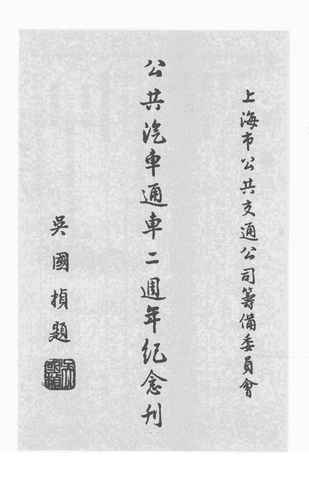 上海市公共交通公司籌備委員會
公共汽車通車二週年紀念刊
吳國楨題